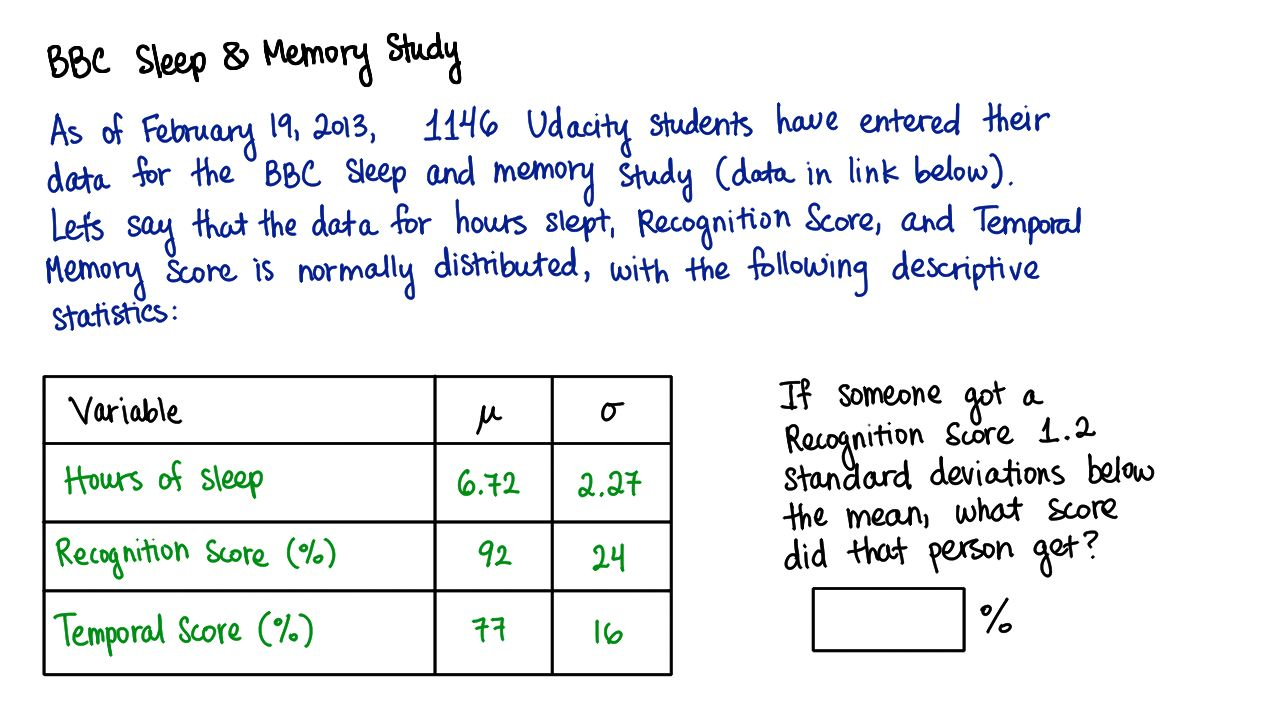 BBC Sleep & Memory Study
As of February 19, 2013, 1146 Udacity students have entered their
data for the BBC Sleep and memory Study (data in link below).
Let's say that the data for hours slept, Recognition Score, and Temporal
Memory Score is normally distributed, with the following descriptive
statistics:
Variable μ σ
Hours of sleep 6.72 2.27
Recognition Score (%) 92 24
Temporal Score (%) 77 16
If someone got a
Recognition Score 1.2
standard deviations below
the mean, what score
did that person get?
%